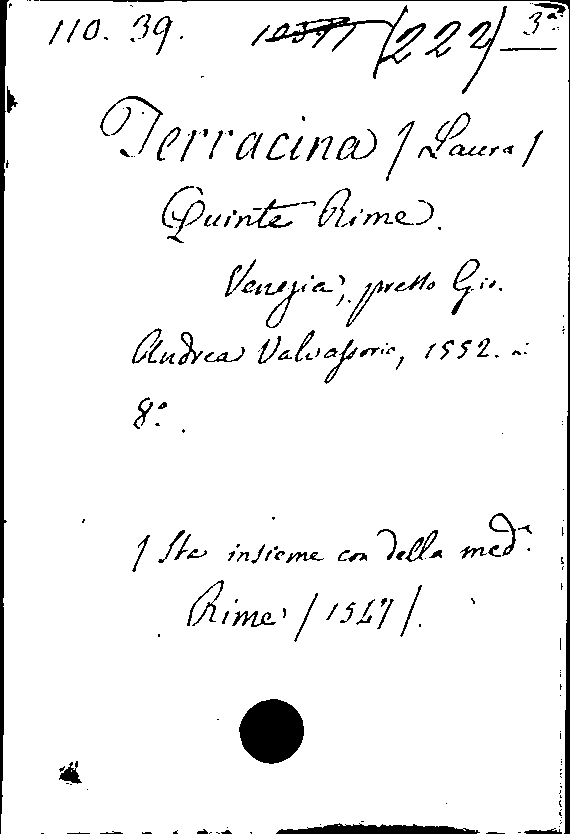 110. 39. (222) 3ª
Terracina / Laura /
Quinte Rime.
Venezia, presso Gio.
Andrea Valvassorio, 1552. in
8º.
/ Sta insieme con della medª.
Rime / 1547 /.